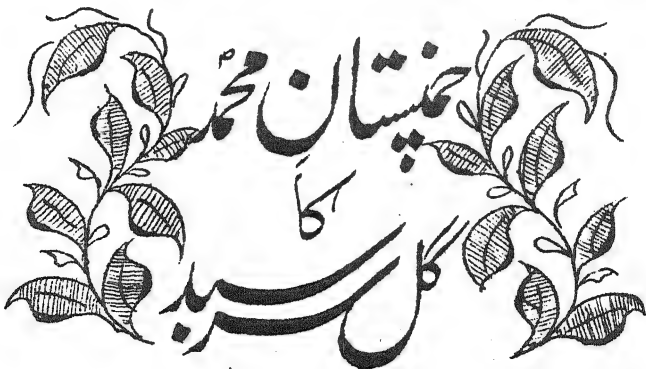 چمنستان محمدؐ
کا
گل سرسبد